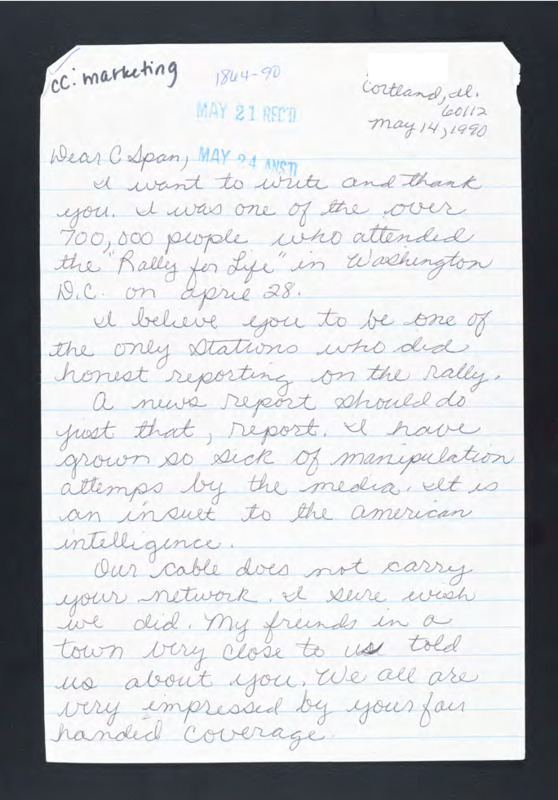 cc: marketing
1864-90
MAY 21 REC'D
Cortland, Il.
60112
May 14, 1990
Dear C Span,
MAY 24 ANS'D
I want to write and thank
you. I was one of the over
700,000 people who attended
the "Rally for Life" in Washington
D.C. on April 28.
I believe you to be one of
the only stations who did
honest reporting on the rally.
A news report should do
just that, report. I have
grown so sick of manipulation
attemps by the media. It is
an insult to the American
intelligence.
Our cable does not carry
your network. I sure wish
we did. My freinds in a
town very close to us told
us about you. We all are
very impressed by your fair
handed coverage.